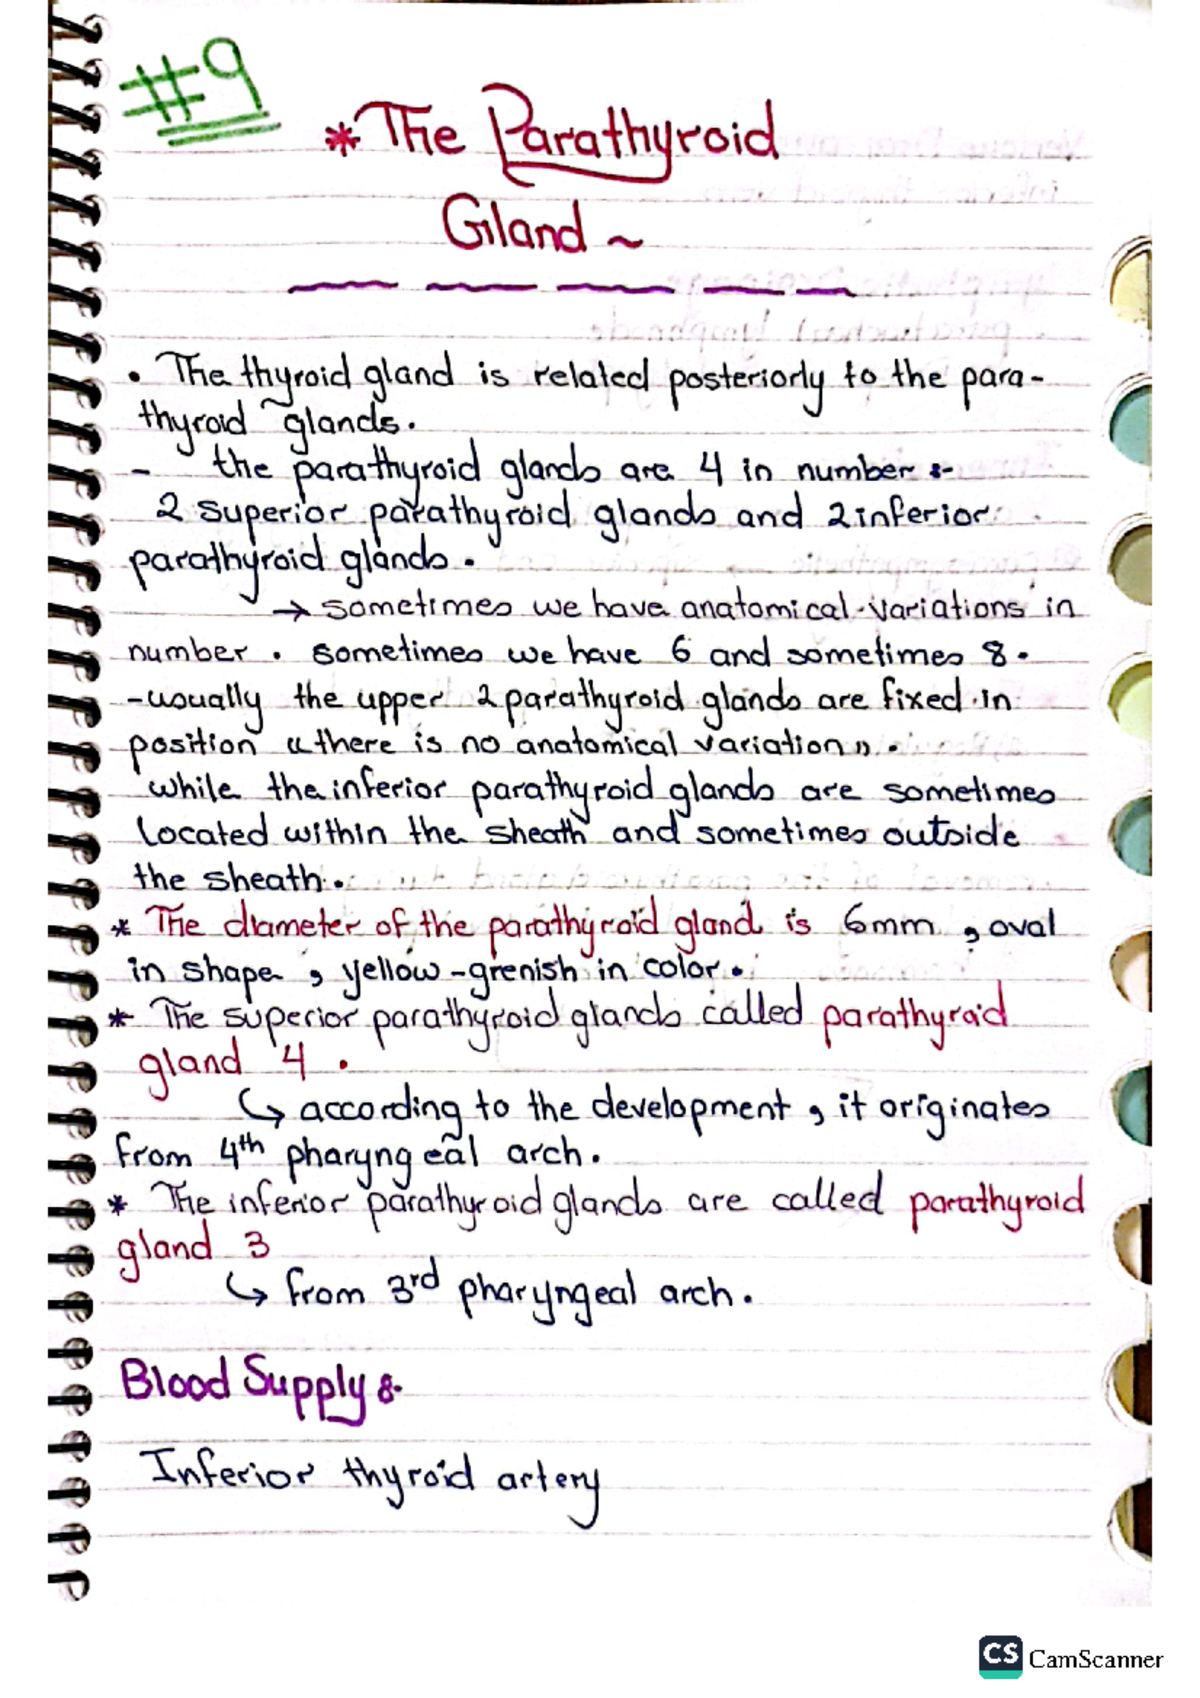 #9
* The Parathyroid
Gland ~
• The thyroid gland is related posteriorly to the para-
thyroid glands.
- the parathyroid glands are 4 in number :-
2 superior parathyroid glands and 2 inferior
parathyroid glands.
→ sometimes we have anatomical variations in
number. sometimes we have 6 and sometimes 8.
-usually the upper 2 parathyroid glands are fixed in
position «there is no anatomical variation».
while the inferior parathyroid glands are sometimes
located within the sheath and sometimes outside
the sheath.
* The diameter of the parathyroid gland is 6mm, oval
in shape, yellow-grenish in color.
* The superior parathyroid glands called parathyroid
gland 4.
↳ according to the development, it originates
from 4th pharyngeal arch.
* The inferior parathyroid glands are called parathyroid
gland 3
↳ from 3rd pharyngeal arch.
Blood Supply :-
Inferior thyroid artery
CS CamScanner